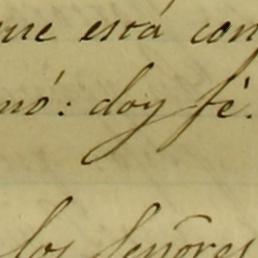 que está con
mó: doy fè.
los Señores